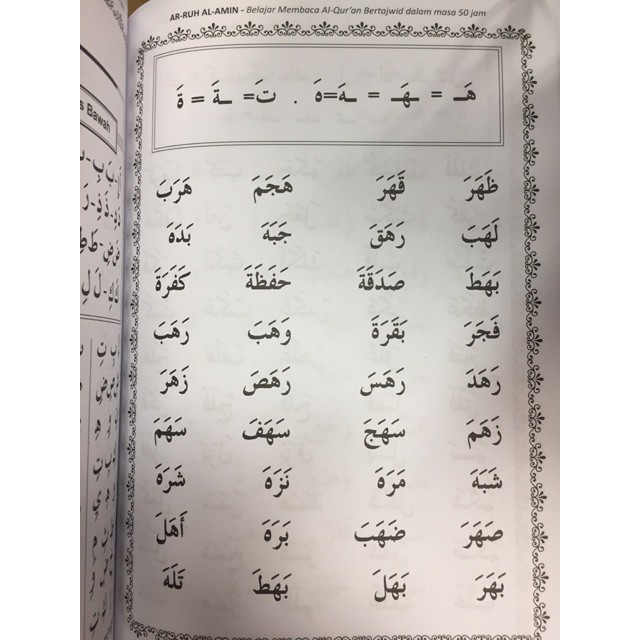 AR-RUH AL-AMIN - Belajar Membaca Al-Qur'an Bertajwid dalam masa 50 jam
هَـ = ـهَـ = ـهَ=هَ . تَ= ـةَ = ةَ
ظَهَرَ قَهَرَ هَجَمَ هَرَبَ
لَهَبَ رَهَقَ جَبَهَ بَدَهَ
بَهَظَ صَدَقَةَ حَفَظَةَ كَفَرَةَ
فَجَرَ بَقَرَةَ وَهَبَ رَهَبَ
رَهَدَ رَهَسَ رَهَصَ زَهَرَ
زَهَمَ سَهَجَ سَهَفَ سَهَمَ
شَبَهَ مَرَهَ نَزَهَ شَرَهَ
صَهَرَ ضَهَبَ بَرَهَ أَهَلَ
بَهَرَ بَهَلَ بَهَظَ تَلَهَ
Bawah